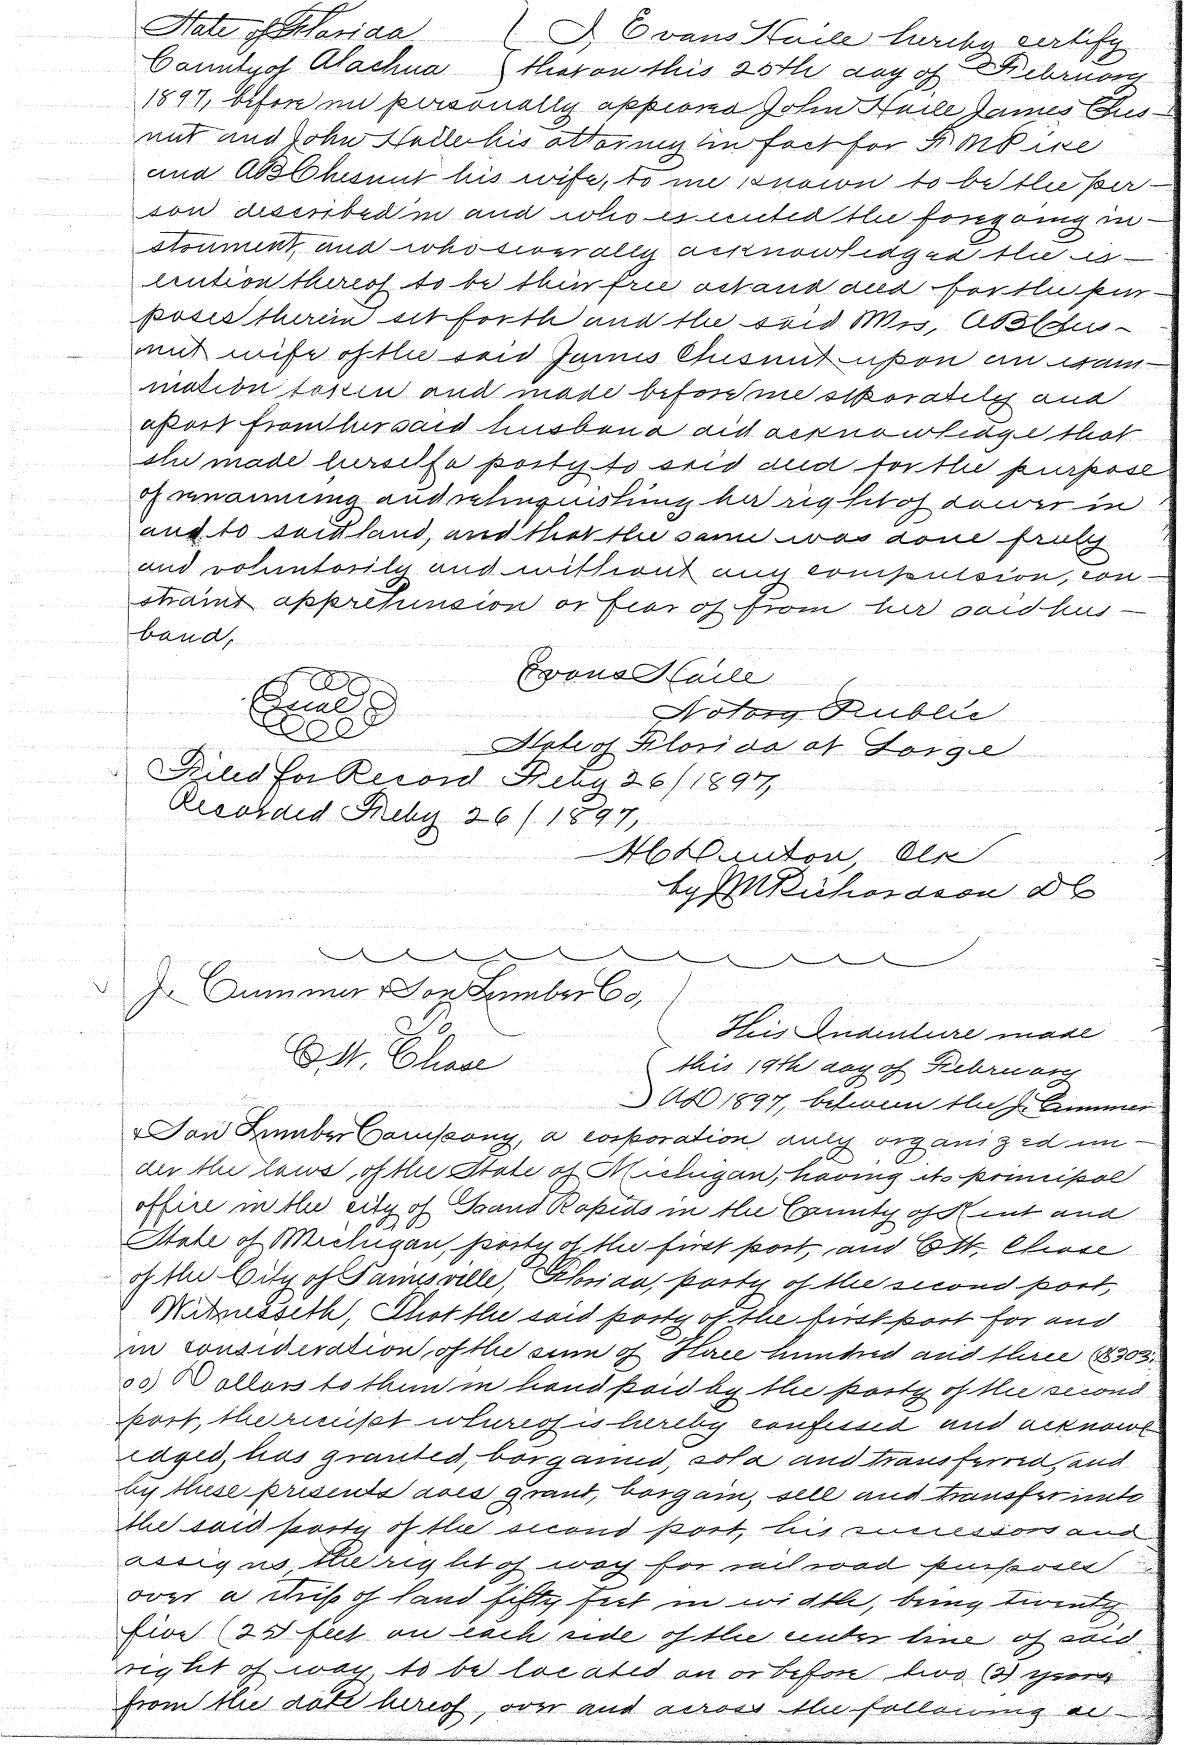 State of Florida } I, Evans Haile hereby certify
County of Alachua } that on this 25th day of February
1897, before me personally appeared John Haile James Ches-
nut and John Haile his attorney in fact for
and AB Chesnut his wife, to me known to be the per-
son described in and who executed the foregoing in-
strument, and who severally acknowledged the ex-
ecution thereof to be their free act and deed for the pur-
poses therein set forth and the said Mrs, AB Ches-
nut wife of the said James Chesnut upon an exam-
ination taken and made before me separately and
apart from her said husband did acknowledge that
she made herself a party to said deed for the purpose
of renouncing and relinquishing her right of dower in
and to said land, and that the same was done freely
and voluntarily and without any compulsion, con-
straint apprehension or fear of from her said hus-
band,
Evans Haile
Seal
Notary Public
State of Florida at Large
Filed for Record Feby 26/1897,
Recorded Feby 26/1897,
H C Denton, Clk
by JM Richardson DC
J. Cummer & Son Lumber Co,
To
E.W. Chase
This Indenture made
this 19th day of February
AD 1897, between the J. Cummer
& Son Lumber Company, a corporation duly organized un-
der the laws of the State of Michigan, having its principal
office in the city of Grand Rapids in the County of Kent and
State of Michigan, party of the first part, and E.W. Chase
of the City of Gainesville, Florida, party of the second part,
Witnesseth, That the said party of the first part for and
in consideration of the sum of Three hundred and three ($303.
00) Dollars to them in hand paid by the party of the second
part, the receipt whereof is hereby confessed and acknowl
edged, has granted, bargained, sold and transferred, and
by these presents does grant, bargain, sell and transfer unto
the said party of the second part, his successors and
assigns, the right of way for railroad purposes
over a strip of land fifty feet in width, being twenty
five (25) feet on each side of the center line of said
right of way, to be located on or before two (2) years
from the date hereof, over and across the following de-